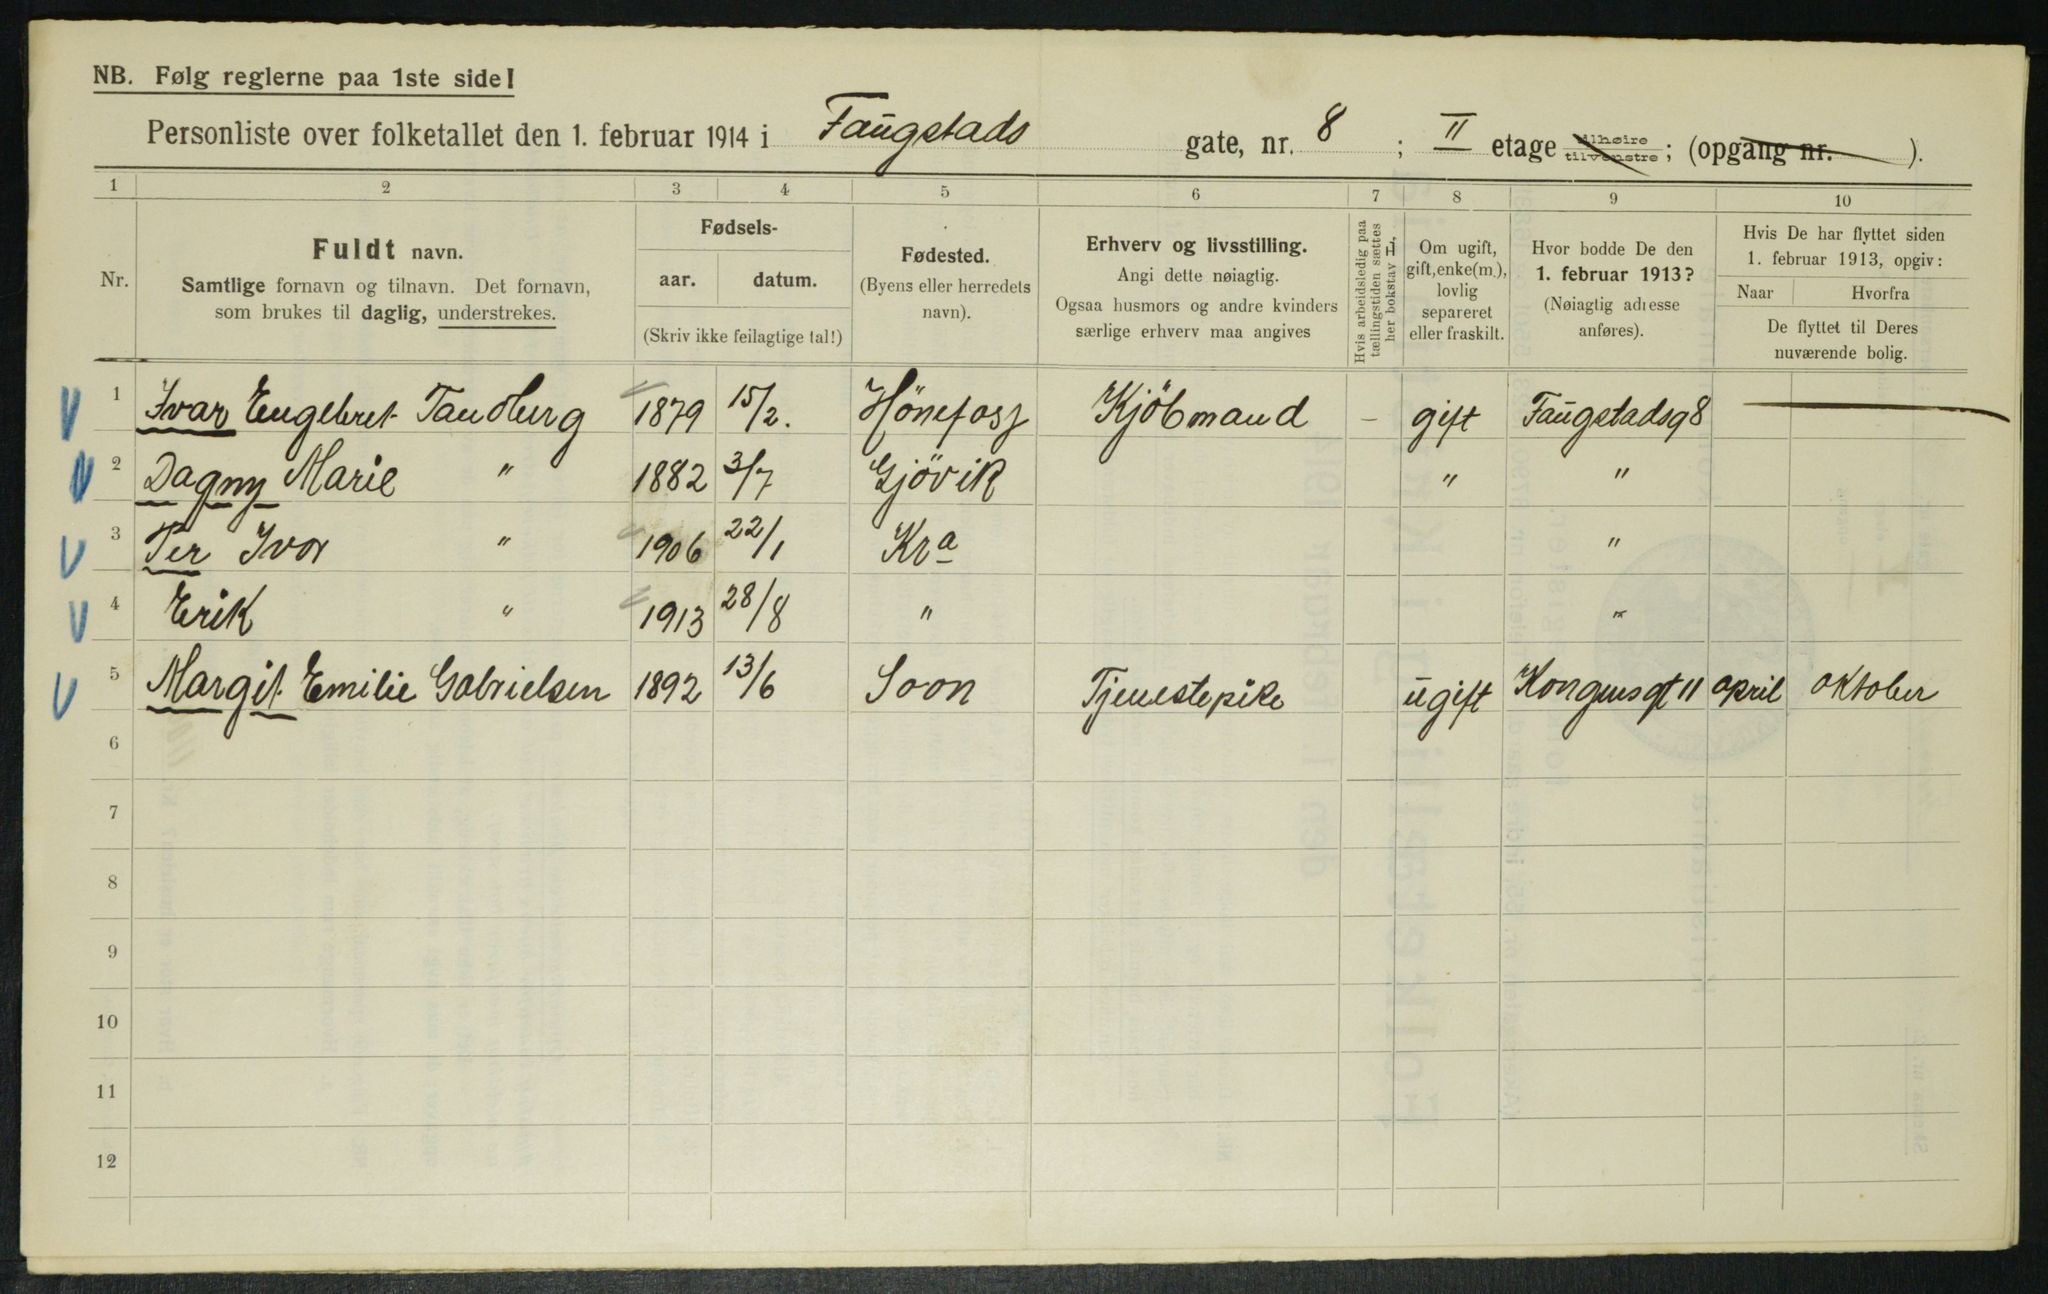 NB. Følg reglerne paa 1ste side!
Personliste over folketallet den 1. februar 1914 i Faugstads gate, nr. 8 ; II etage tilhøire tilvenstre ; (opgang nr. ).
1 2 3 4 5 6 7 8 9 10
Nr.
Fuldt navn.
Samtlige fornavn og tilnavn. Det fornavn,
som brukes til daglig, understrekes.
Fødsels-
aar. datum.
(Skriv ikke feilagtige tal!)
Fødested.
(Byens eller herredets
navn).
Erhverv og livsstilling.
Angi dette nøiagtig.
Ogsaa husmors og andre kvinders
særlige erhverv maa angives
Hvis arbeidsledig paa
tællingstiden sættes
her bokstav L.
Om ugift,
gift, enke(m.),
lovlig
separeret
eller fraskilt.
Hvor bodde De den
1. februar 1913?
(Nøiagtig adresse
anføres).
Hvis De har flyttet siden
1. februar 1913, opgiv:
Naar Hvorfra
De flyttet til Deres
nuværende bolig.
1 Ivar Engebret Tandberg 1879 15/2. Hönefoss Kjöbmand - gift Faugstadsg 8
2 Dagny Marie " 1882 3/7 Gjövik " "
3 Per Ivar " 1906 22/1 Kra "
4 Erik " 1913 28/8 " "
5 Margit Emilie Gabrielsen 1892 13/6 Soon Tjenestepike ugift Kongensgt 11 april oktober
6
7
8
9
10
11
12